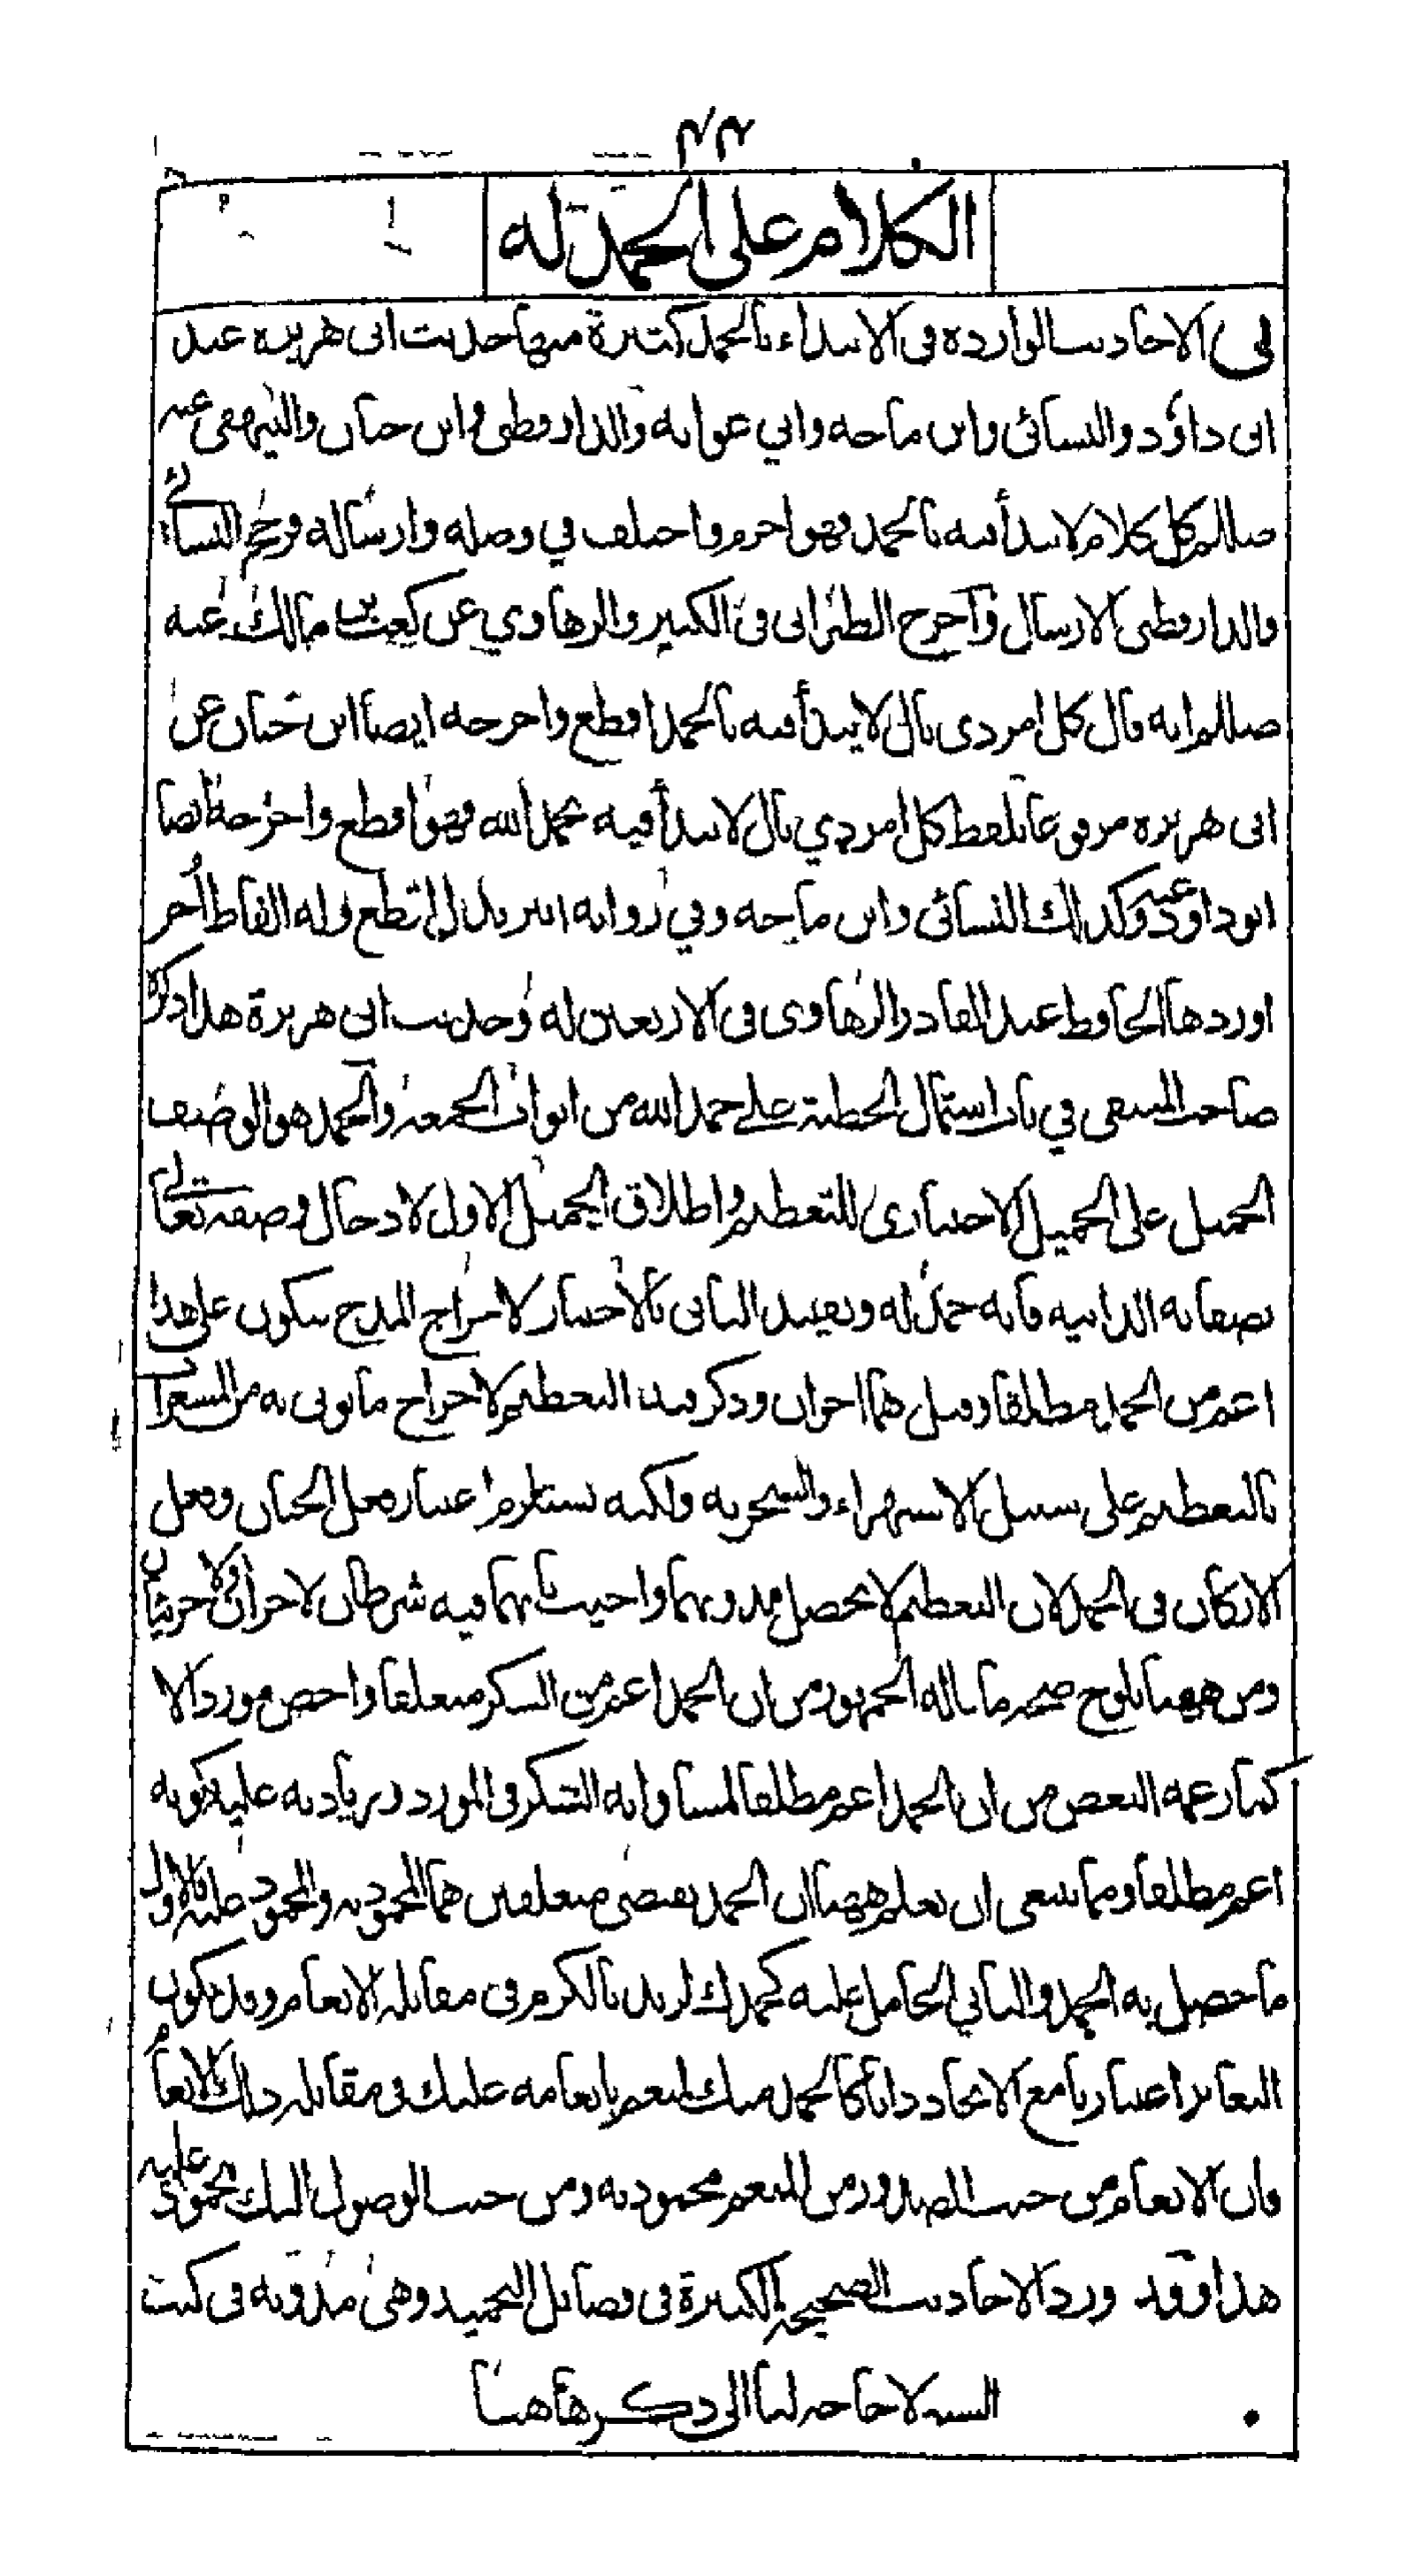 ٤٣
الكلام على الحمد له
في الاحاديث الواردة في الابتداء بالحمد كثيرة منها حديث ابي هريرة عند
ابي داؤد والنسائي وابن ماجه وابي عوانه والدارقطني وابن حبان والبيهقي عنه
صللم كل كلام لا يبدأ فيه بالحمد فهو اجزم واختلف في وصله وارساله فرجح النسائي
والدارقطني الارسال وآخرج الطبراني في الكبير والرهاوي عن كعب بن مالك عنه
صللم انه قال كل امر ذي بال لا يبدأ فيه بالحمد اقطع واخرجه ايضا ابن حبان عن
ابي هريره مرفوعا بلفظ كل امر ذي بال لا يبدأ فيه بحمد الله فهو اقطع واخرجه ايضا
ابو داؤد عنه وكذلك النسائي وابن ماجه وفي روايه ابتر بدل اقطع وله الفاظ أخر
اوردها الحافظ عبد القادر الرهاوي في الاربعين له وحديث ابي هريرة هذا ذكره
صاحب المنتقى في باب اشتمال الخطبة على حمد الله من ابواب الجمعه والحمد هو الوصف
الجميل على الجميل الاختياري للتعظيم واطلاق الجميل الاول لادخال وصفه تعالى
بصفاته الذاتيه فانه حمد له وتقييد الثاني بالاختيار لاخراج المدح فيكون على هذا
اعم من الحمد مطلقا وقيل هما اخوان وذكر قيد التعظيم لاخراج ما يوتى به من المشعرات
بالتعظيم على سبيل الاستهزاء والسخريه ولكنه يستلزم اعتبار فعل الجنان وفعل
الاركان في الحمد لان التعظيم لا يحصل بدونهما واجيب بانهما فيه شرطان لا جزآن ولا جزئيان
ومن ههنا يلوح صحه ما قاله الجمهور من ان الحمد اعم من الشكر متعلقا واخص موردا لا
كما زعمه البعض من ان الحمد اعم مطلقا لمساواته الشكر في المورد وزيادته عليه بكونه
اعم مطلقا ومما ينبغي ان يعلم ههنا ان الحمد يقتضي متعلقين هما المحمود به والمحمود عليه فالاول
ما حصل به الحمد والثاني الحامل عليه كحمدك لزيد بالكرم في مقابلة الانعام وقد يكون
التغاير اعتباريا مع الاتحاد ذاتا كالحمد منك لمنعم بانعامه عليك في مقابله ذلك الانعام
فان الانعام من حيث الصدور من المنعم محمود به ومن حيث الوصول اليك محمود عليه
هذا وقد ورد الاحاديث الصحيحه الكثيرة في فضائل التحميد وهي مدونه في كتب
السنه لا حاجه لنا الى ذكرها هنا